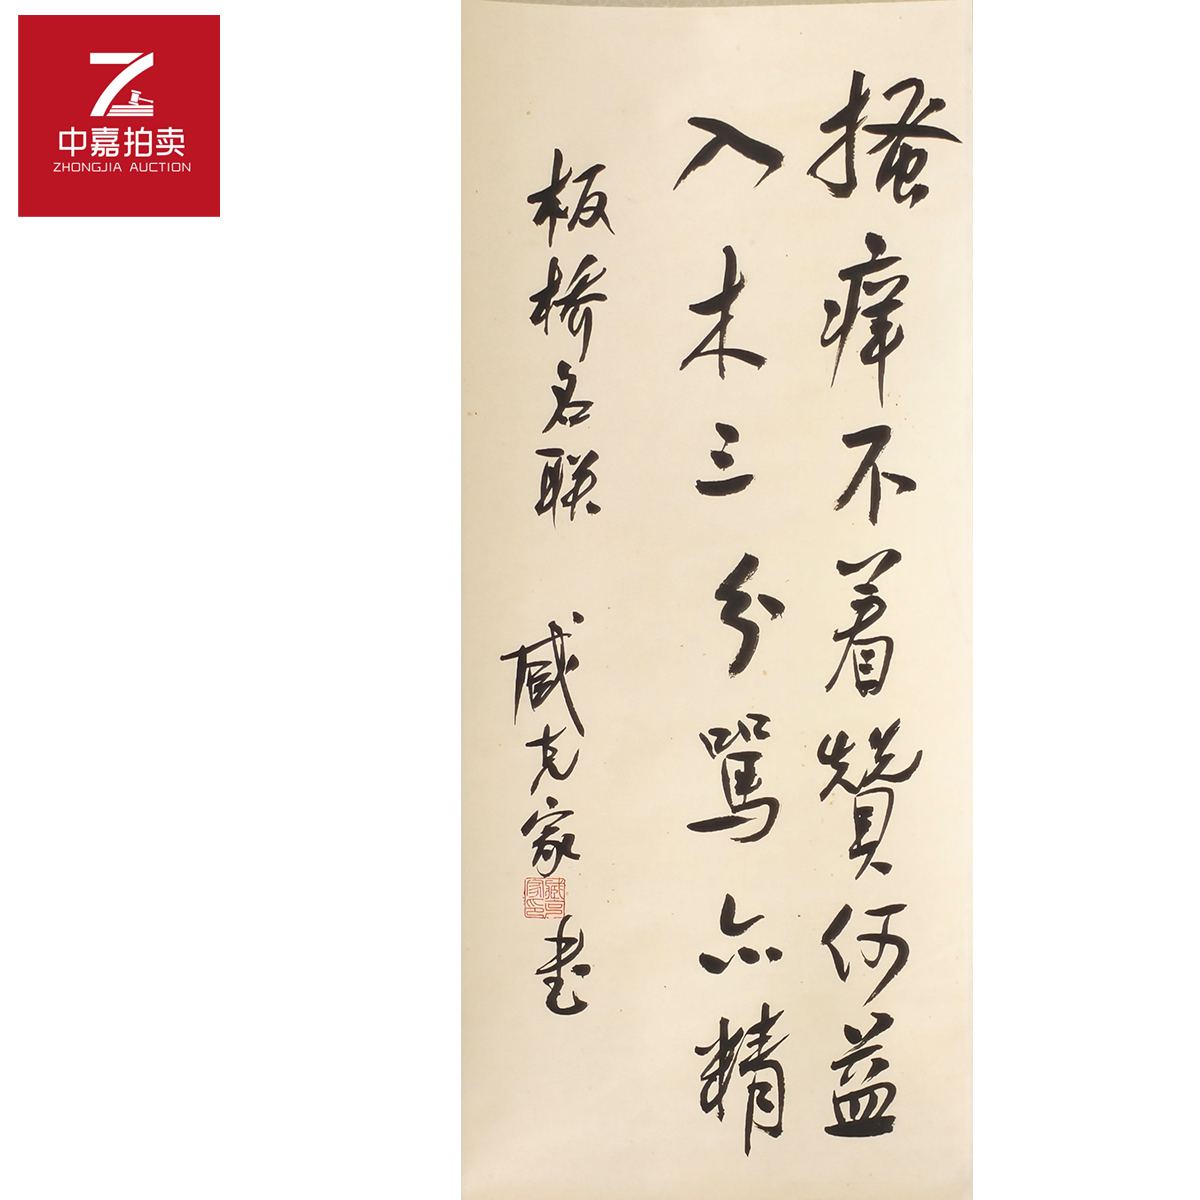 中嘉拍卖
ZHONGJIA AUCTION
搔痒不着赞何益
入木三分骂亦精
板桥名联 臧克家 书